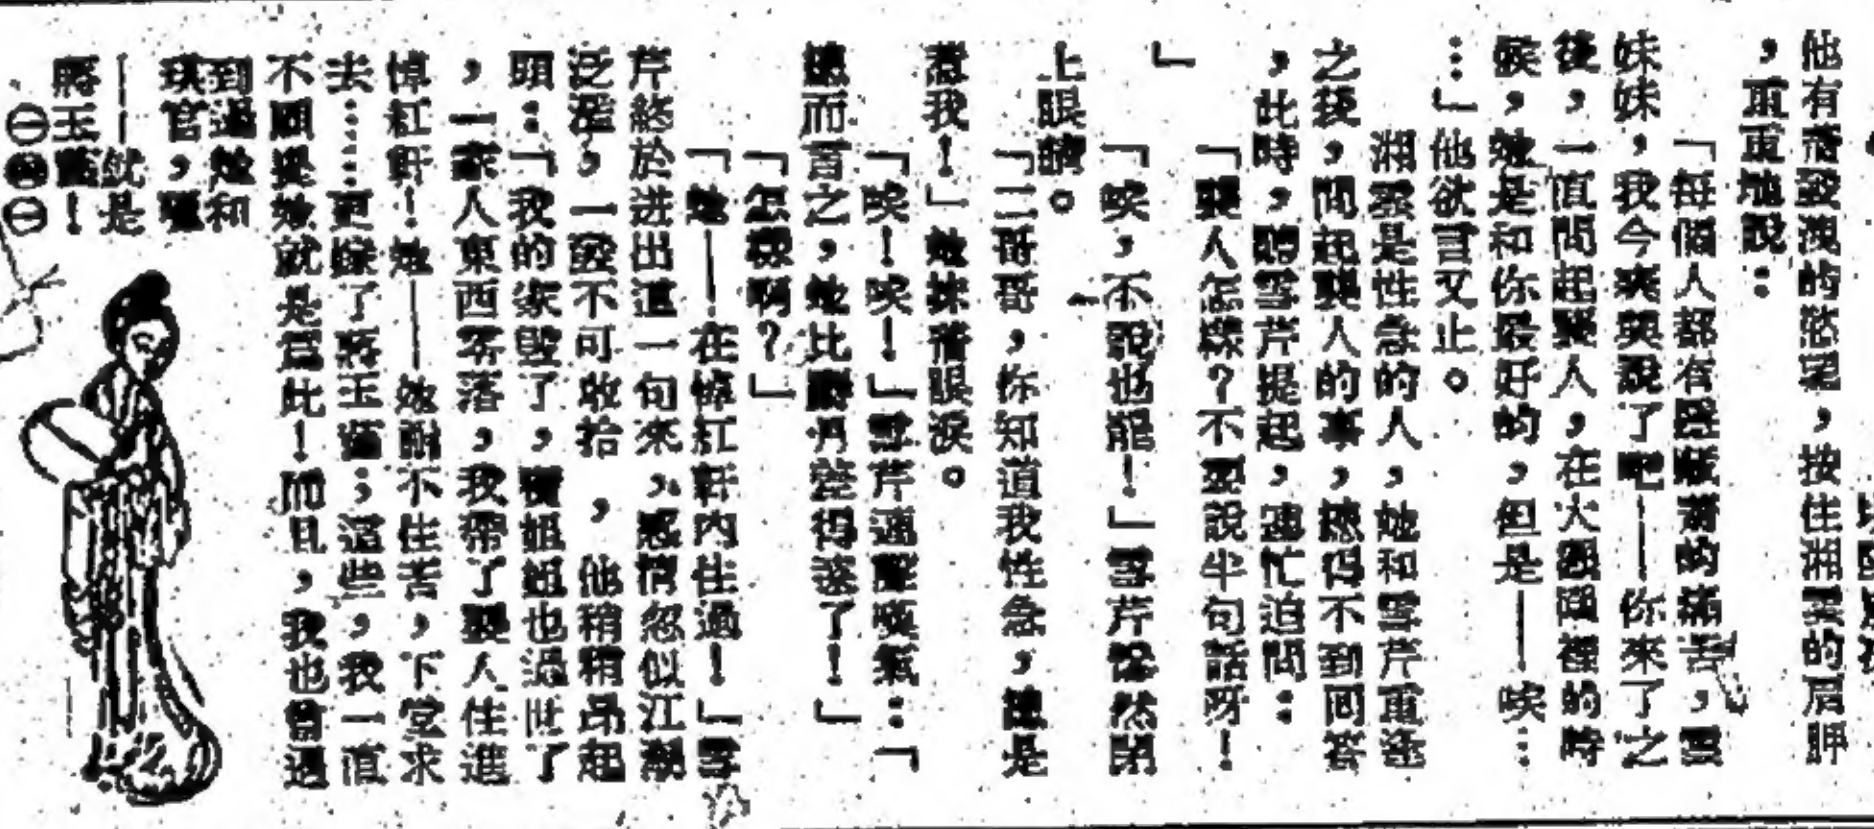 他有着發洩的慾望，按住湘雲的肩胛
，重重地說：
「每個人都有隱藏着的痛苦，雲
妹妹，我今爽爽說了吧——你來了之
後，一直問起襲人，在大觀園裡的時
候，她是和你最好的，但是——唉…
…」他欲言又止。
湘雲是性急的人，她和雪芹重逢
之後，問起襲人的事，總得不到回答
，此時，聽雪芹提起，連忙迫問：
「襲人怎樣？不要說半句話呀！
」
「唉，不說也罷！」雪芹慘然閉
上眼睛。
「二哥哥，你知道我性急，總是
惹我！」她抹着眼淚。
「唉！唉！」雪芹連聲嘆氣：「
總而言之，她比麝月差得遠了！」
「怎樣啊？」
「她——在悼紅軒內住過！」雪
芹終於迸出這一句來，感情忽似江潮
泛濫，一發不可收拾，他稍稍昂起
頭：「我的家毀了，寶姐姐也過世了
，一家人東西零落，我帶了襲人住進
悼紅軒！她——她耐不住苦，下堂求
去……更嫁了蔣玉菡；這些，我一直
不願提她就是爲此！而且，我也曾遇
到過她和
琪官，
——就是
蔣玉菡！